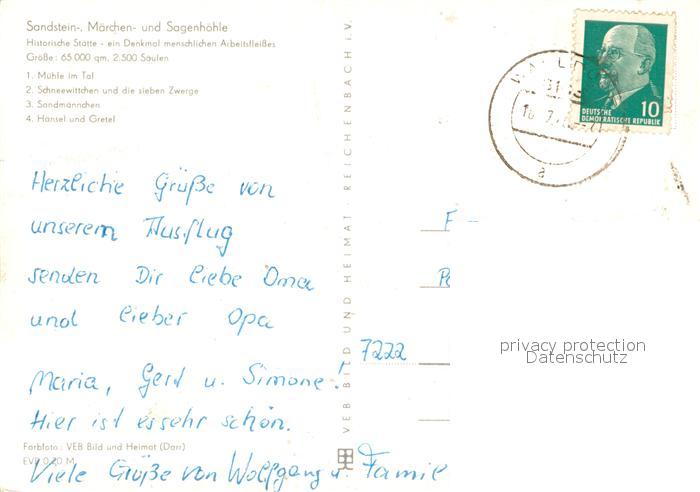 Sandstein-, Märchen- und Sagenhöhle
Historische Stätte - ein Denkmal menschlichen Arbeitsfleißes
Größe: 65 000 qm, 2.500 Säulen
1. Mühle im Tal
2. Schneewittchen und die sieben Zwerge
3. Sandmännchen
4. Hänsel und Gretel
Herzliche Grüße von
unserem Ausflug
senden Dir liebe Oma
und lieber Opa
Maria, Gerd u. Simone!
Hier ist es sehr schön.
Viele Grüße von Wolfgang u. Famil
Farbfoto: VEB Bild und Heimat (Darr)
EVP 0,20 M
VEB BILD UND HEIMAT · REICHENBACH i.V.
10
DEUTSCHE
DEMOKRATISCHE REPUBLIK
F
7222
privacy protection
Datenschutz